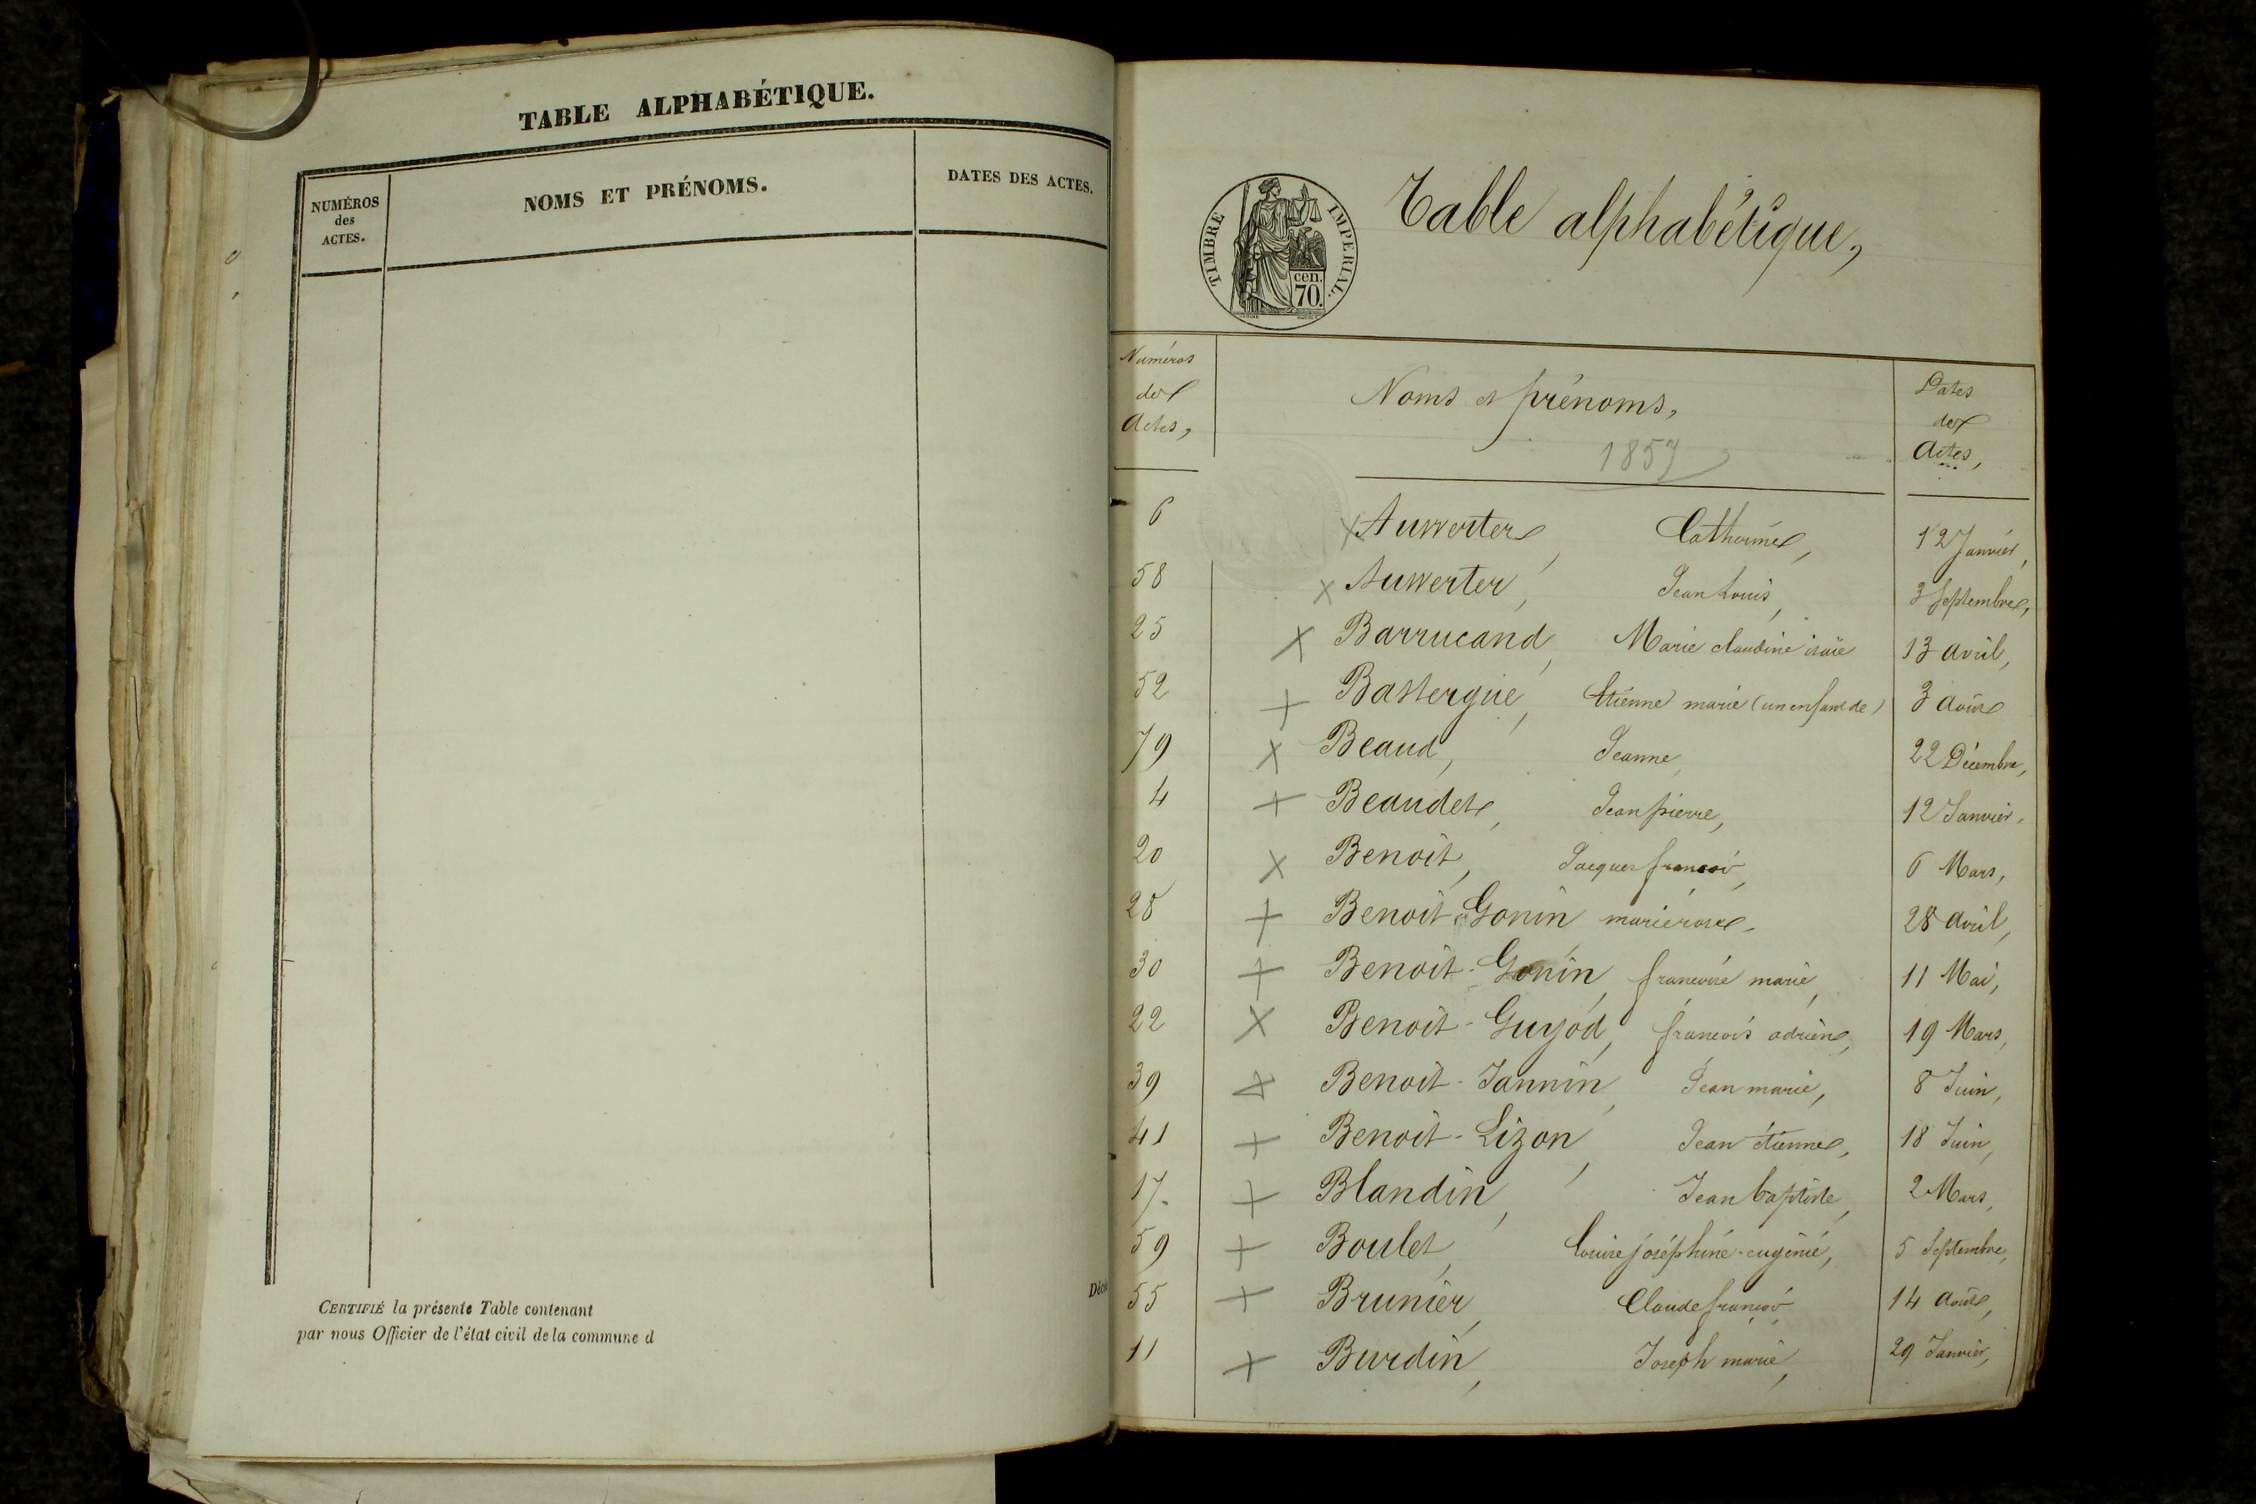 TABLE ALPHABÉTIQUE.
NUMÉROS
des
ACTES.
NOMS ET PRÉNOMS.
DATES DES ACTES.
CERTIFIÉ la présente Table contenant
par nous Officier de l'état civil de la commune d
TIMBRE IMPERIAL.
cen.
70.
Table alphabétique,
Numéros
des
Actes,
Noms et prénoms,
1857
Dates
des
Actes,
6 Auwerter, Catherine, 12 Janvier,
58 Auwerter, Jean Louis, 3 Septembre,
25 Barrucand, Marie claudine isaïe 13 avril,
52 Bastergue, Etienne marie (un enfant de) 3 août
79 Beaud, Jeanne, 22 Décembre,
4 Beaudet, Jean pierre, 12 Janvier,
20 Benoit, Jacques françois, 6 Mars,
28 Benoit-Gonin marie rose, 28 avril,
30 Benoit-Gonin, françoise marie, 11 Mai,
22 Benoit-Guyod, françois adrien, 19 Mars,
39 Benoit-Jannin, Jean marie, 8 Juin,
41 Benoit-Lizon, Jean étienne, 18 Juin,
17 Blandin, Jean baptiste, 2 Mars,
59 Boulet, Louise joséphine-eugénie, 5 Septembre,
55 Brunier, Claude françois, 14 août,
11 Burdin, Joseph marie, 29 Janvier,